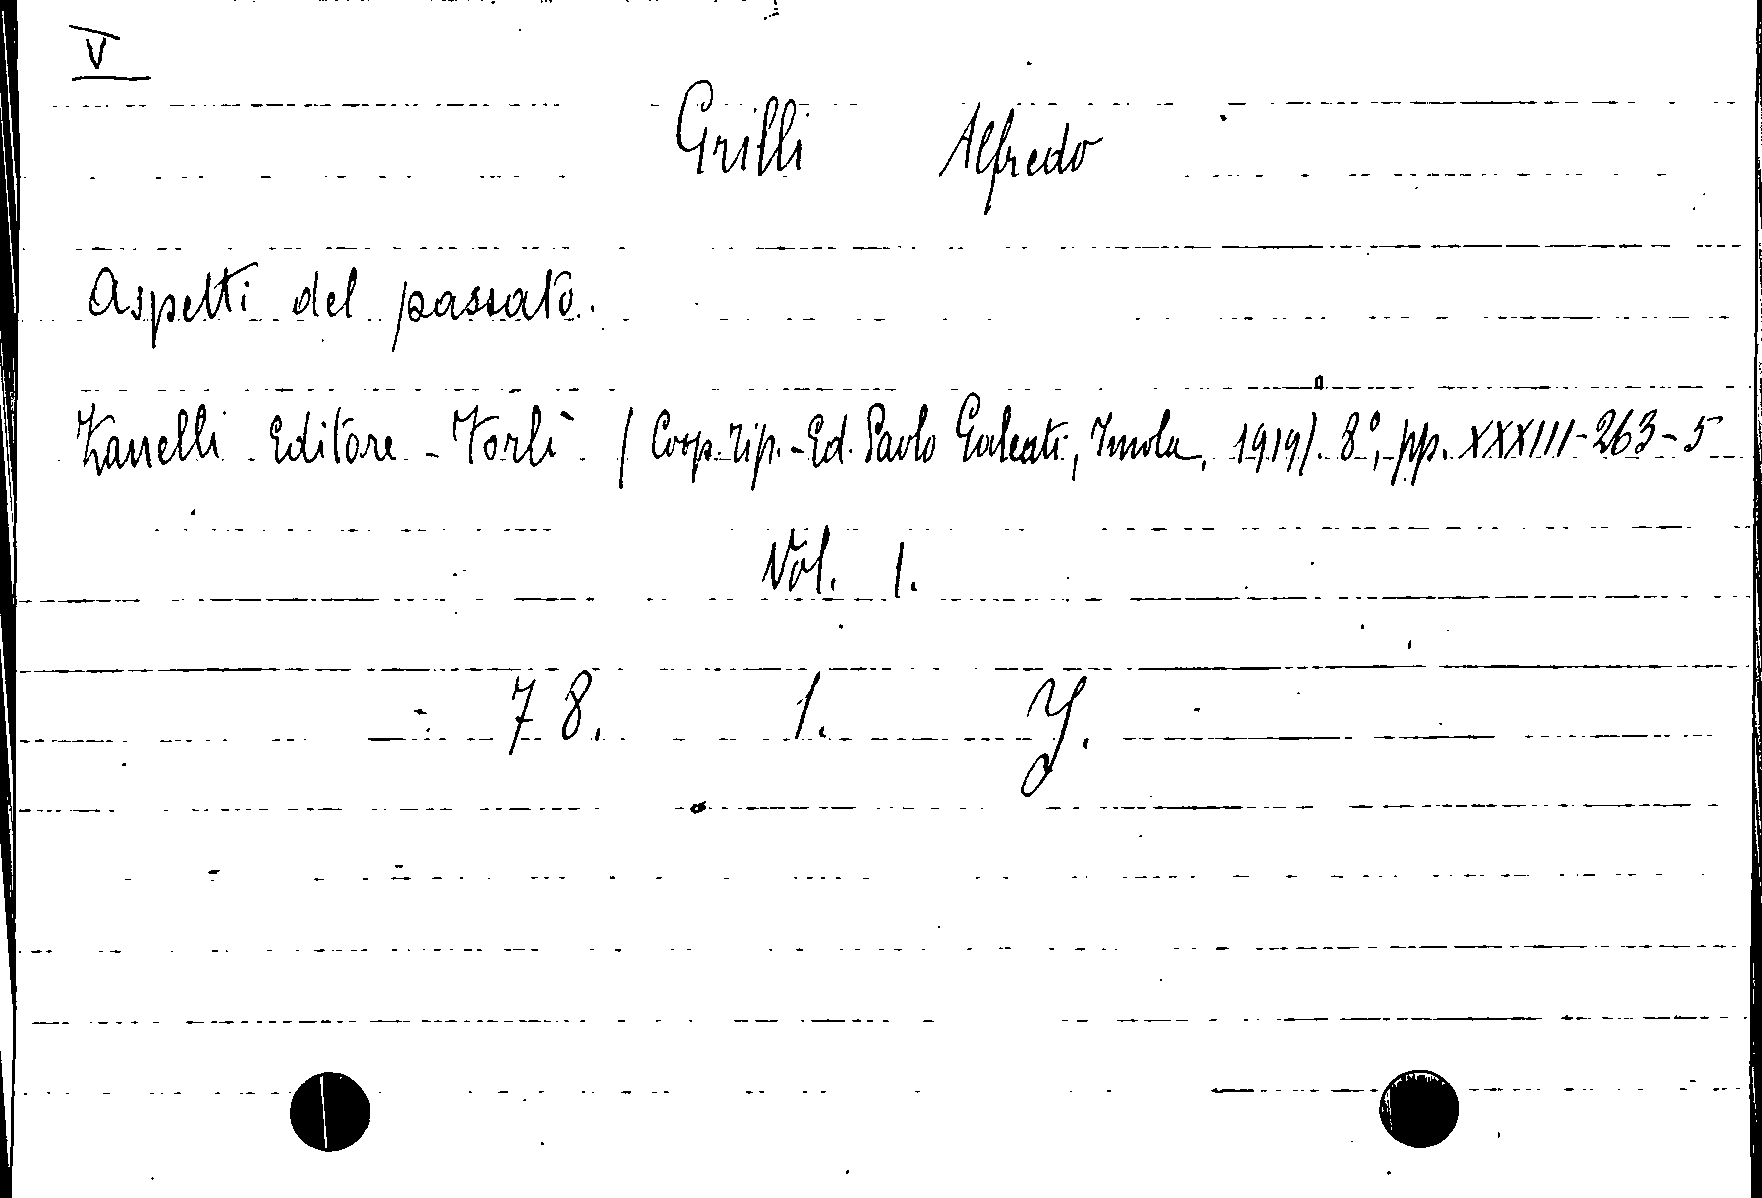 V
Grilli Alfredo
Aspetti del passato.
Zanelli Editore - Forlì (Coop. Tip. - Ed. Paolo Galeati, Imola, 1919). 8°, pp. XXXIII-263-5
Vol. 1.
78. 1. Y.